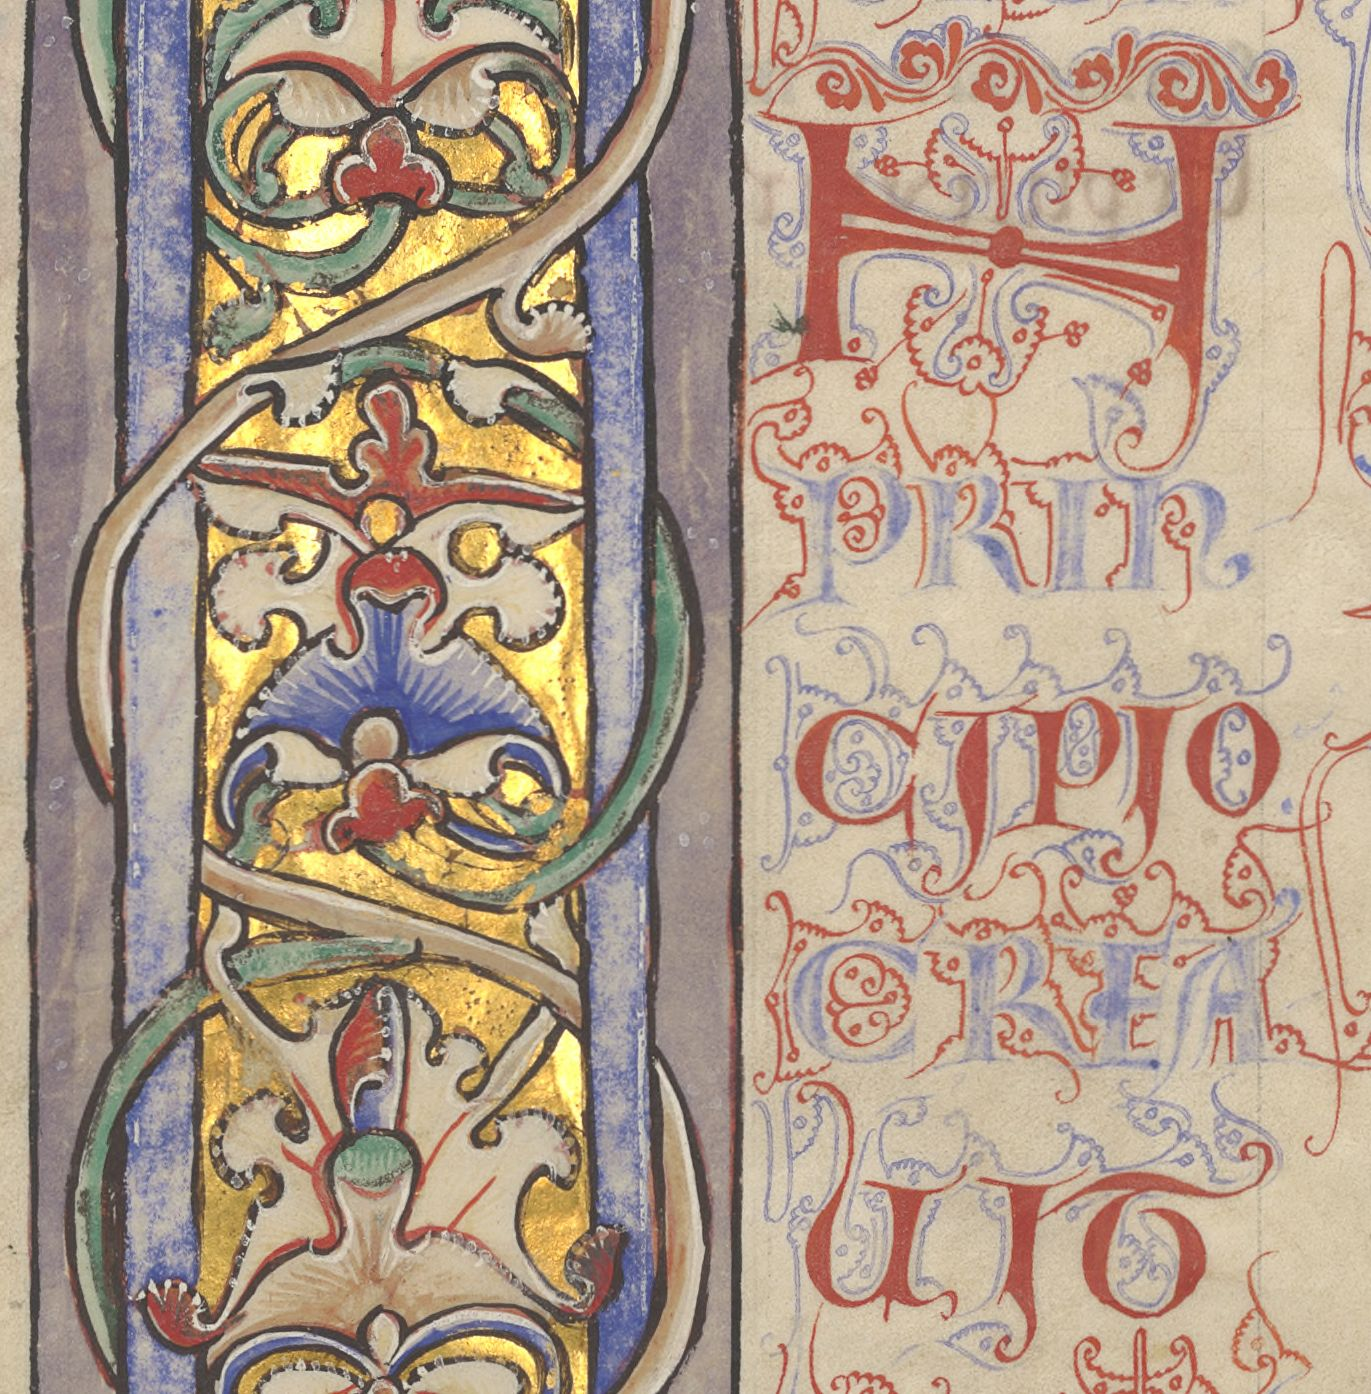 N
PRIN
CIPIO
CREA
UIT